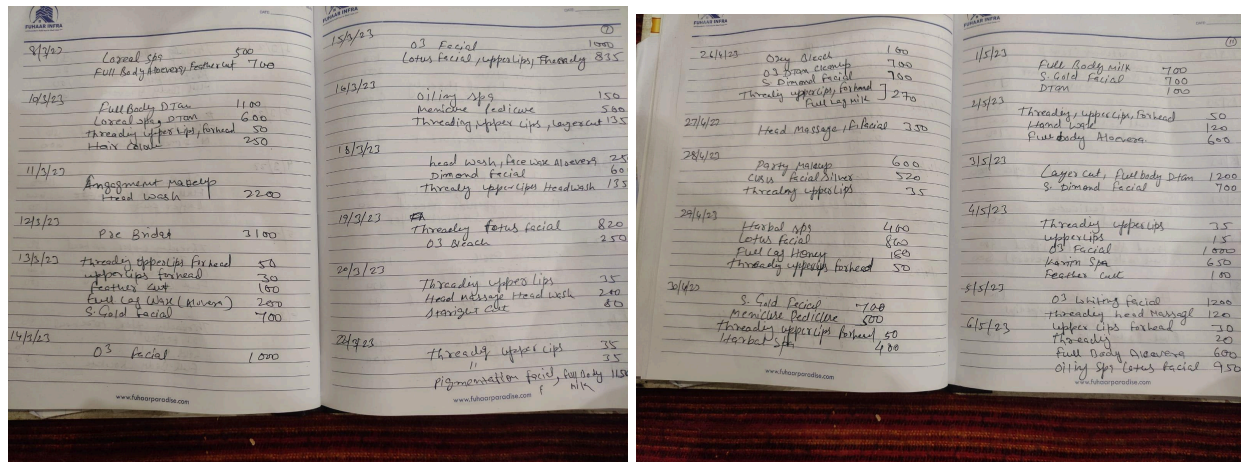 FUHAAR INFRA
DATE
8/3/23
Loreal spa 500
Full Body Aloevera, Feather cut 700
10/3/23
Full Body DTan 1100
Loreal spa, DTan 600
Thready upper Lips, forhead 50
Hair Colour 250
11/3/23
Engagment Makeup
Head Wash 2200
12/3/23
Pre Bridal 3100
13/3/23
Thready upper Lips forhead 50
upper Lips forhead 30
Feather cut 100
Full Lag Wax (Alovera) 200
S. Gold Facial 700
14/3/23
O3 Facial 1000
www.fuhaarparadise.com
FUHAAR INFRA
15/3/23
O3 Facial 1000
Lotus Facial, upper Lips, Thready 835
16/3/23
Oiling spa 150
Menicure Pedicure 500
Threading, upper Lips, Layer cut 135
18/3/23
head wash, face wax Aloevera 25
Dimond Facial 60
Thready upper Lips Headwash 135
19/3/23
Thready Lotus facial 820
O3 Bleach 250
20/3/23
Thready upper Lips 35
Head Massage Head Wash 200
Straight Cut 80
22/3/23
Thready upper Lips 35
" 35
Pigmentation facial, full Body 1150
www.fuhaarparadise.com
FUHAAR INFRA
26/4/23
Oxy Bleach 100
O3 DTan cleanup 700
S. Dimond Facial 700
Thready upper Lips, forhead
Full Lag Milk ] 270
27/4/23
Head Massage, Facial 350
28/4/23
Party Makeup 600
Facial Silver 520
threading upper Lips 35
29/4/23
Harbal spa 400
Lotus Facial 800
Full Lag Honey 160
Thready upper Lips forhead 50
30/4/23
S. Gold Facial 700
Menicure Pedicure 500
Thready upper Lips forhead 50
Harbal Spa 400
www.fuhaarparadise.com
FUHAAR INFRA
1/5/23
Full Body Milk 700
S. Gold Facial 700
DTan 100
2/5/23
Thready, upper Lips, Forhead 50
Hand Wax 120
Full body Aloevera 600
3/5/23
Layer Cut, Full body DTan 1200
S. Dimond Facial 700
4/5/23
Thready upper Lips 35
upper Lips 15
O3 Facial 1000
Spa 650
Feather Cut 100
5/5/23
O3 Whiting facial 1200
thready head Massage 120
6/5/23
upper Lips forhead 30
Thready 20
Full Body Aloevera 600
Oiling Spa Lotus Facial 950
www.fuhaarparadise.com